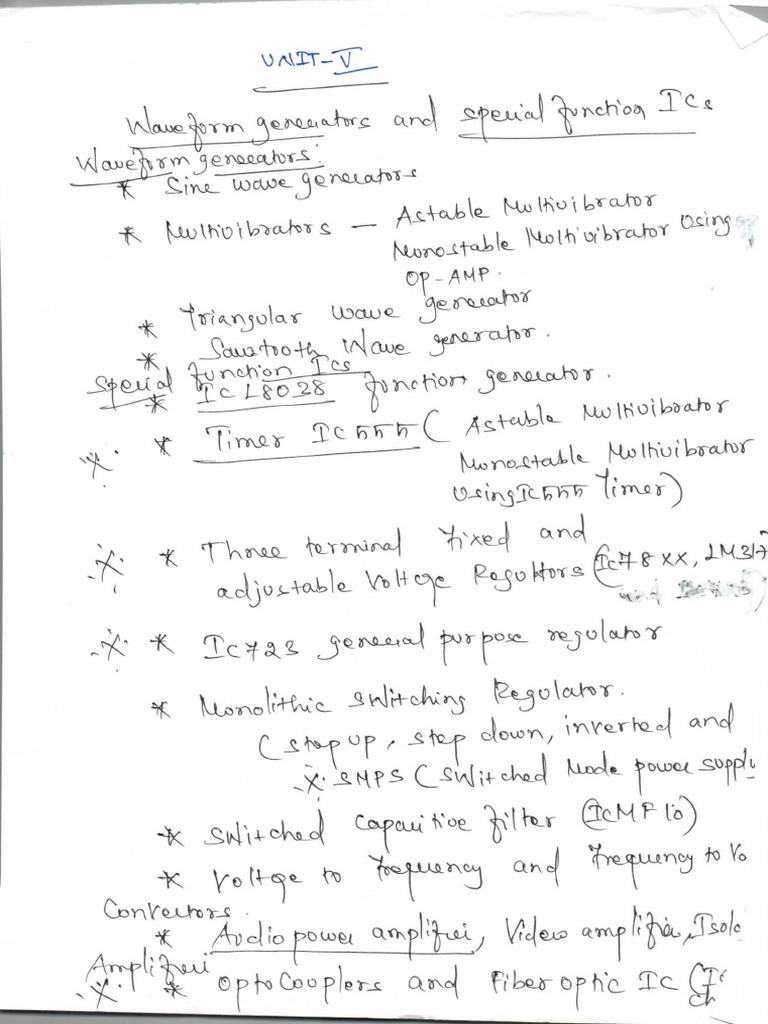 UNIT-V
Waveform generators and special function ICs
Waveform generators:
* Sine wave generators
* Multivibrators — Astable Multivibrator
Monostable Multivibrator Using
OP-AMP.
* Triangular wave generator
* Sawtooth Wave generator.
Special function ICs
* ICL8038 function generator.
* Timer IC555 ( Astable Multivibrator
Monostable Multivibrator
Using IC555 Timer)
* Three terminal fixed and
adjustable Voltge Regultors (IC78XX, LM317
* IC723 general purpose regulator
* Monolithic Switching Regulator.
(step up, step down, inverted and
SMPS (Switched Mode power supply
* Switched Capacitive filter (ICMF10)
* Voltge to frequency and frequency to Vo
Convertors.
* Audio power amplifier, Video amplifier, Isola
Amplifier
* Optocouplers and Fiber optic IC